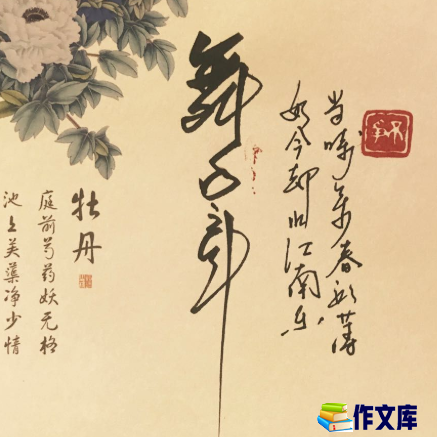 当时年少春衫薄
如今却忆江南乐
舞
牡丹
庭前芍药妖无格
池上芙蕖净少情
作文库